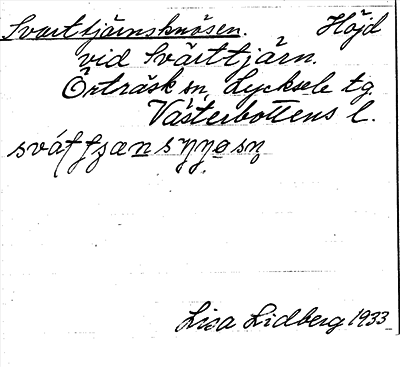 Svarttjärnsknösen. Höjd
vid Svarttjärn.
Örträsk sn, Lycksele tg.
Västerbottens l.
Lisa Lidberg 1933